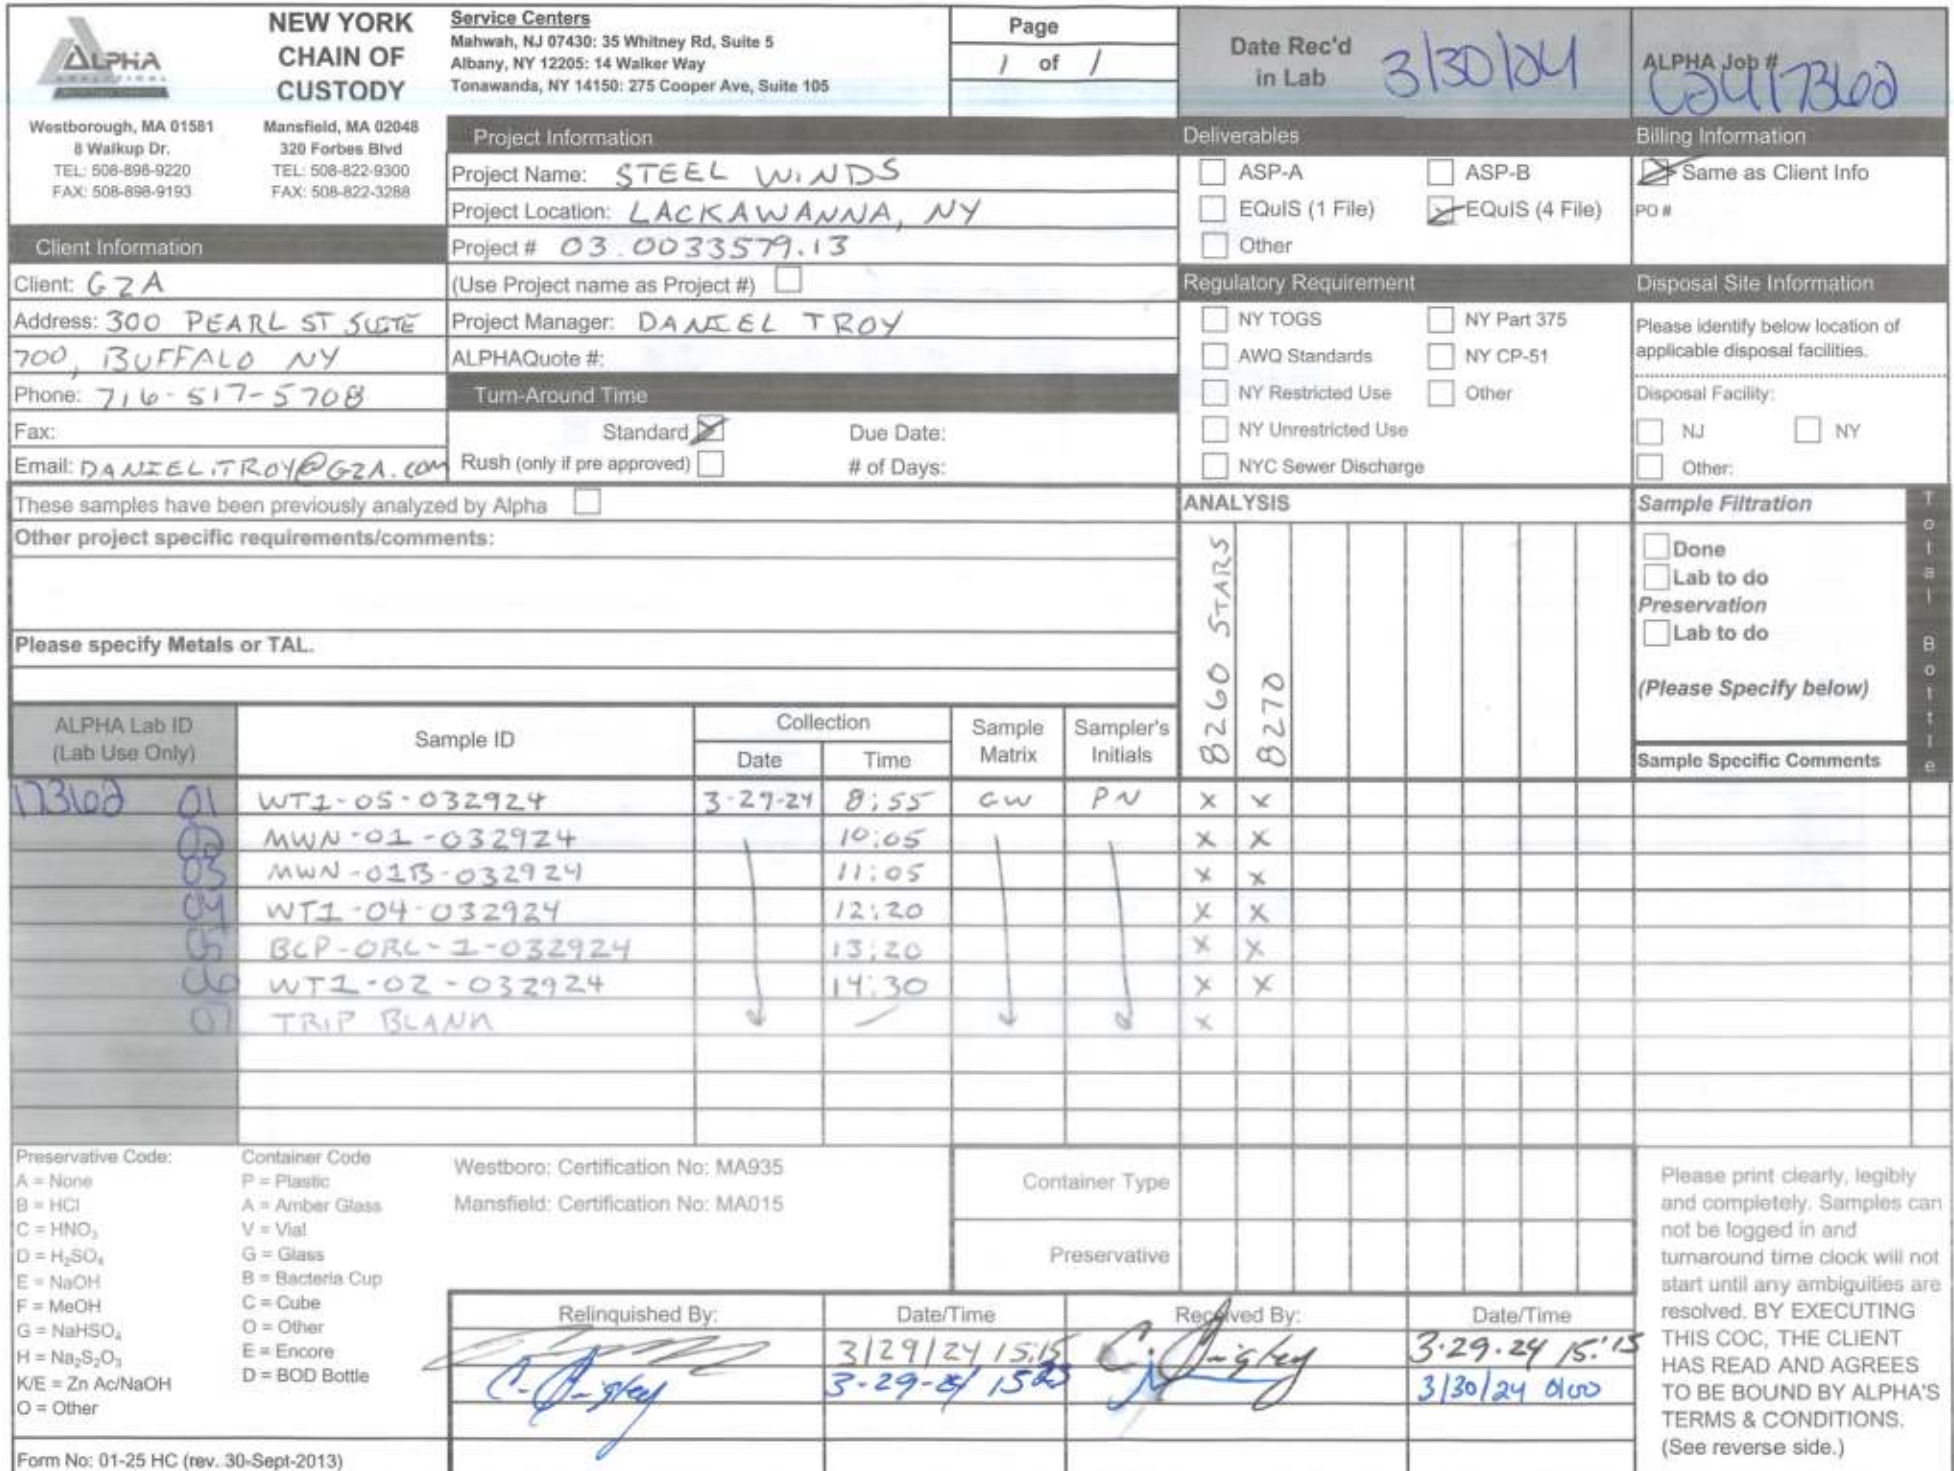 ALPHA
ANALYTICAL
NEW YORK
CHAIN OF
CUSTODY
Westborough, MA 01581
8 Walkup Dr.
TEL: 508-898-9220
FAX: 508-898-9193
Mansfield, MA 02048
320 Forbes Blvd
TEL: 508-822-9300
FAX: 508-822-3288
Service Centers
Mahwah, NJ 07430: 35 Whitney Rd, Suite 5
Albany, NY 12205: 14 Walker Way
Tonawanda, NY 14150: 275 Cooper Ave, Suite 105
Page
1 of 1
Date Rec'd
in Lab
3/30/24
ALPHA Job #
L2417362
Client Information
Client: GZA
Address: 300 PEARL ST SUITE
700, BUFFALO NY
Phone: 716-517-5708
Fax:
Email: DANIEL.TROY@GZA.COM
Project Information
Project Name: STEEL WINDS
Project Location: LACKAWANNA, NY
Project # 03.0033579.13
(Use Project name as Project #)
Project Manager: DANIEL TROY
ALPHAQuote #:
Turn-Around Time
Standard Due Date:
Rush (only if pre approved) # of Days:
Deliverables
ASP-A ASP-B
EQuIS (1 File) EQuIS (4 File)
Other
Regulatory Requirement
NY TOGS NY Part 375
AWQ Standards NY CP-51
NY Restricted Use Other
NY Unrestricted Use
NYC Sewer Discharge
Billing Information
Same as Client Info
PO #
Disposal Site Information
Please identify below location of
applicable disposal facilities.
Disposal Facility:
NJ NY
Other:
These samples have been previously analyzed by Alpha
Other project specific requirements/comments:
Please specify Metals or TAL.
ANALYSIS
8260 STARS
8270
Sample Filtration
Done
Lab to do
Preservation
Lab to do
(Please Specify below)
Sample Specific Comments
Total Bottle
ALPHA Lab ID
(Lab Use Only)
Sample ID
Collection
Date Time
Sample
Matrix
Sampler's
Initials
17362 01 WT1-05-032924 3-29-24 8:55 GW PN X X
02 MWN-01-032924 10:05 X X
03 MWN-01B-032924 11:05 X X
04 WT1-04-032924 12:20 X X
05 BCP-ORC-1-032924 13:20 X X
06 WT1-02-032924 14:30 X X
07 TRIP BLANK — X
Preservative Code:
A = None
B = HCl
C = HNO₃
D = H₂SO₄
E = NaOH
F = MeOH
G = NaHSO₄
H = Na₂S₂O₃
K/E = Zn Ac/NaOH
O = Other
Container Code
P = Plastic
A = Amber Glass
V = Vial
G = Glass
B = Bacteria Cup
C = Cube
O = Other
E = Encore
D = BOD Bottle
Westboro: Certification No: MA935
Mansfield: Certification No: MA015
Container Type
Preservative
Relinquished By: Date/Time Received By: Date/Time
3/29/24 15:15 C. Quigley 3-29-24 15:15
C. Quigley 3-29-24 3/30/24 0100
Please print clearly, legibly
and completely. Samples can
not be logged in and
turnaround time clock will not
start until any ambiguities are
resolved. BY EXECUTING
THIS COC, THE CLIENT
HAS READ AND AGREES
TO BE BOUND BY ALPHA'S
TERMS & CONDITIONS.
(See reverse side.)
Form No: 01-25 HC (rev. 30-Sept-2013)